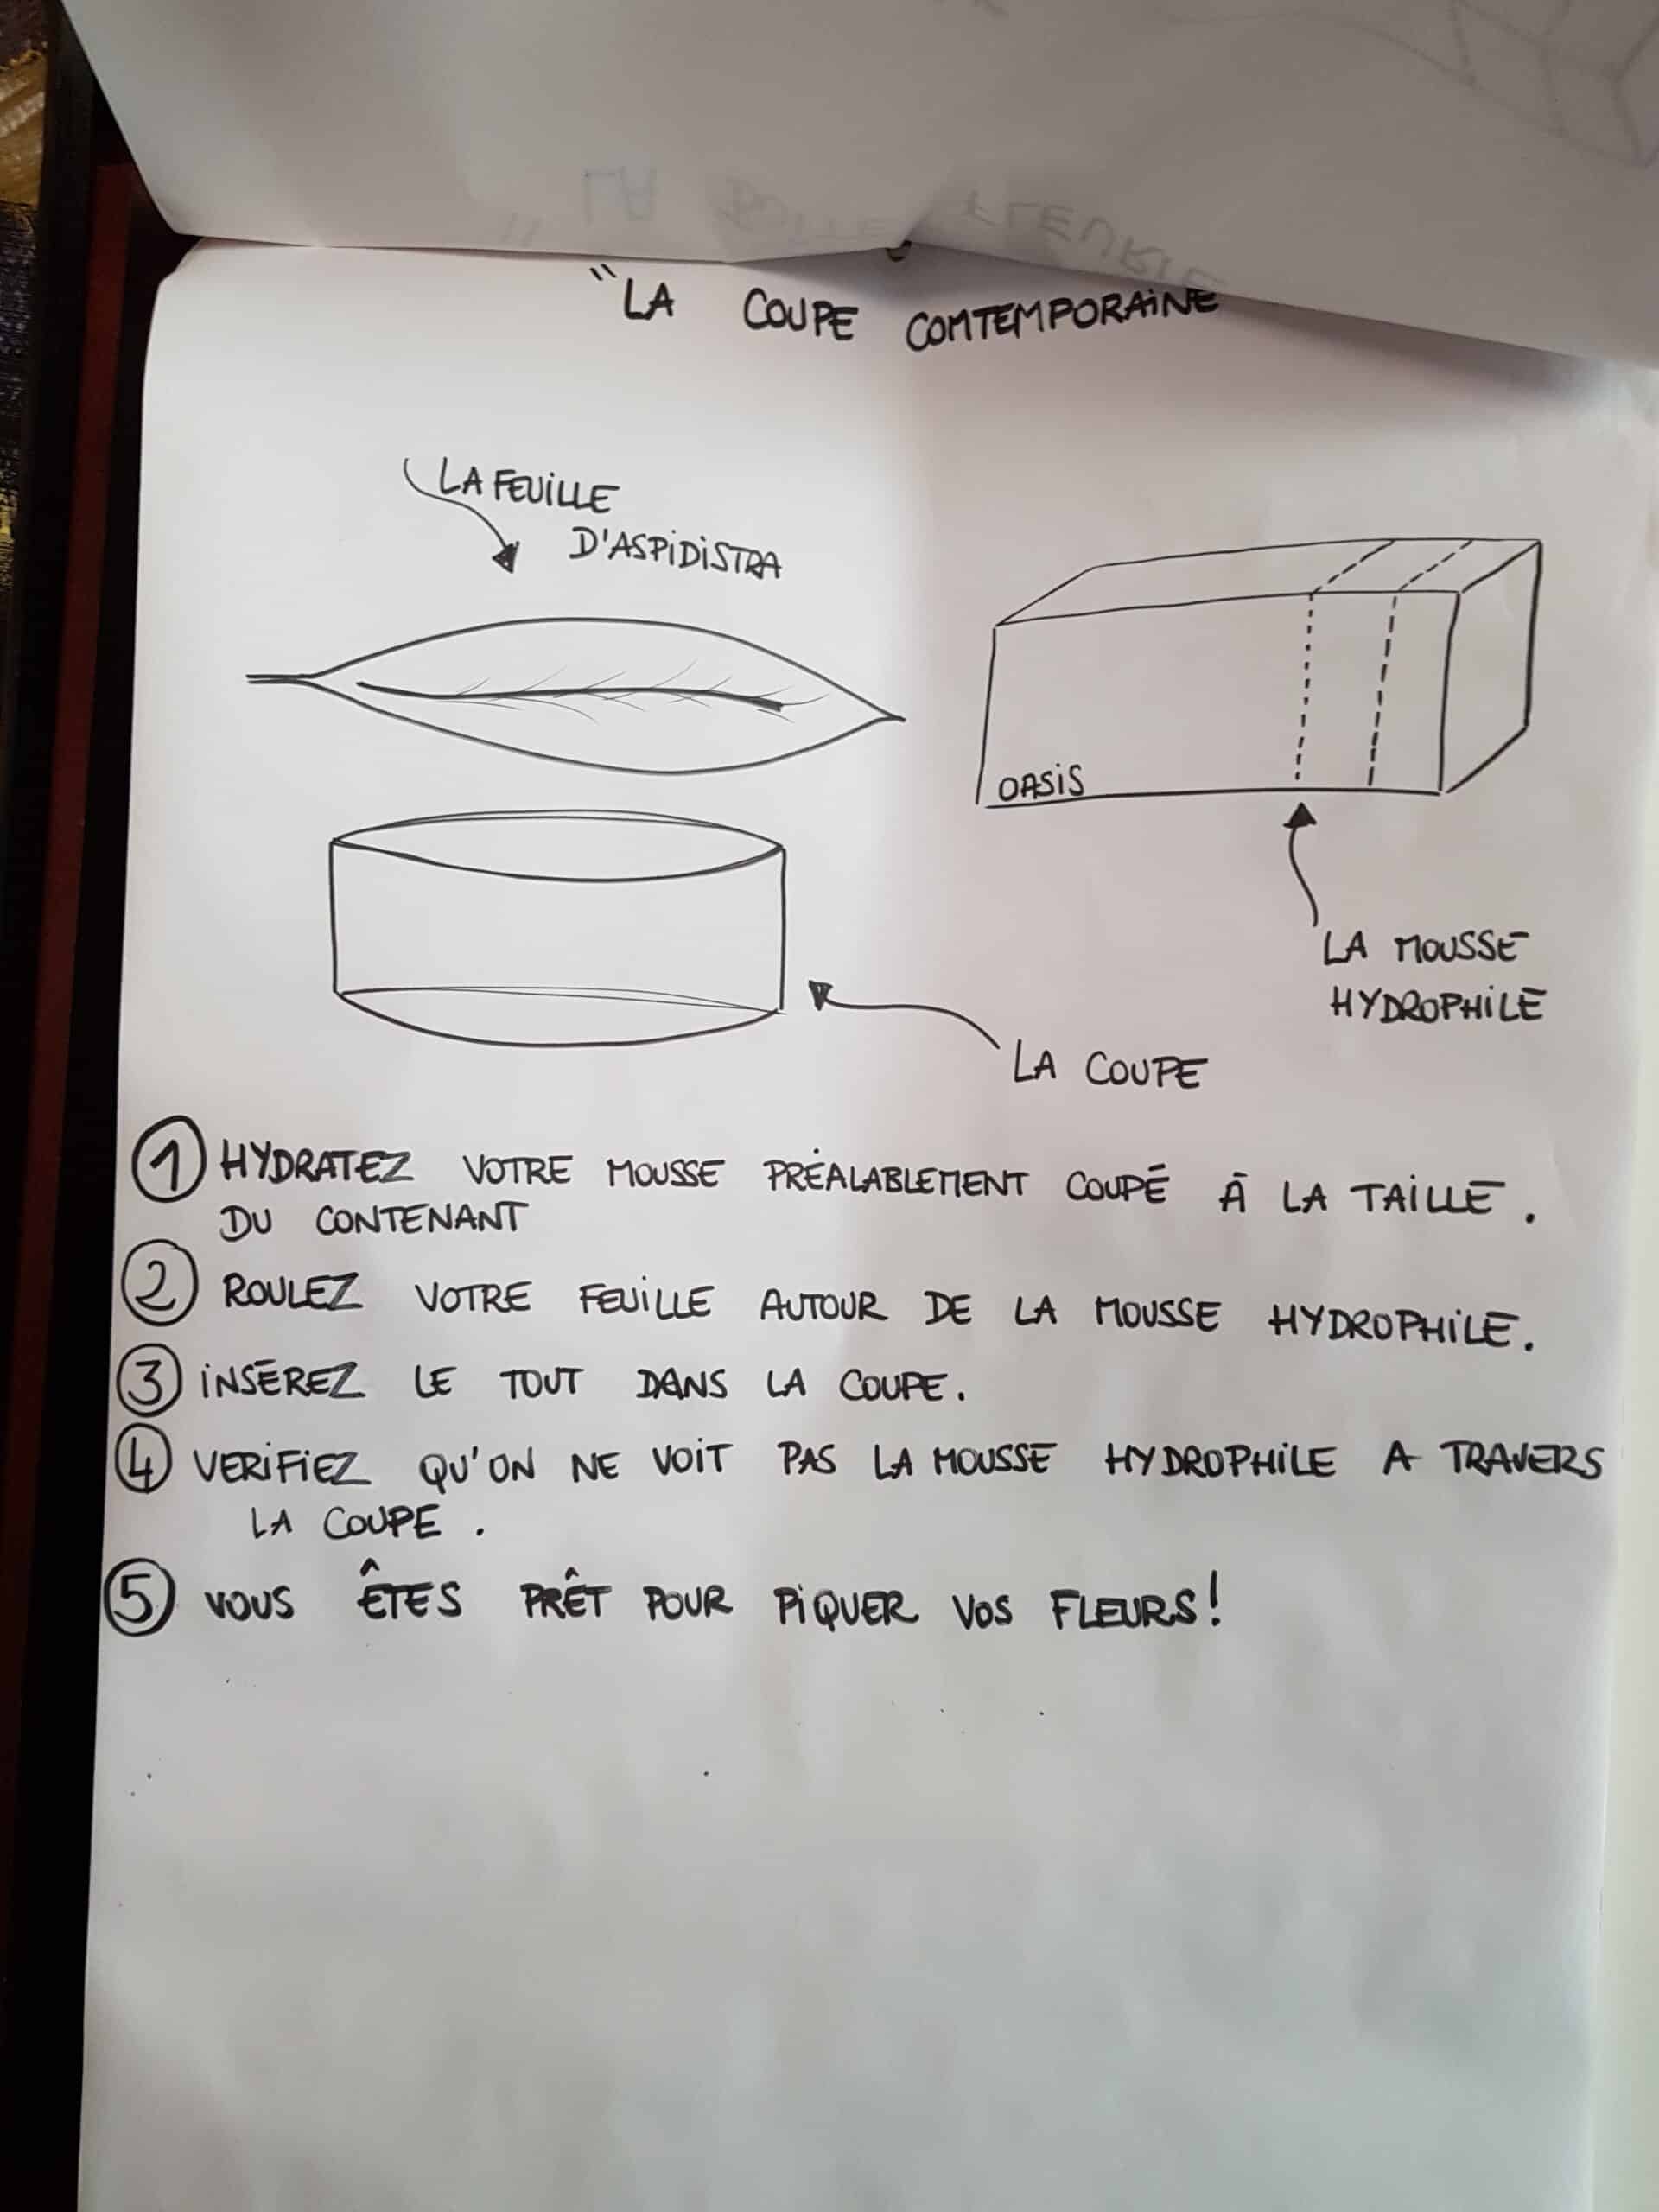 " LA BOITE FLEURIE
"LA COUPE COMTEMPORAINE
LA FEUILLE
D'ASPIDISTRA
OASIS
LA MOUSSE
HYDROPHILE
LA COUPE
1 HYDRATEZ VOTRE MOUSSE PRÉALABLEMENT COUPÉ À LA TAILLE.
DU CONTENANT
2 ROULEZ VOTRE FEUILLE AUTOUR DE LA MOUSSE HYDROPHILE.
3 INSÉREZ LE TOUT DANS LA COUPE.
4 VERIFIEZ QU'ON NE VOIT PAS LA MOUSSE HYDROPHILE A TRAVERS
LA COUPE.
5 VOUS ÊTES PRÊT POUR PIQUER VOS FLEURS!